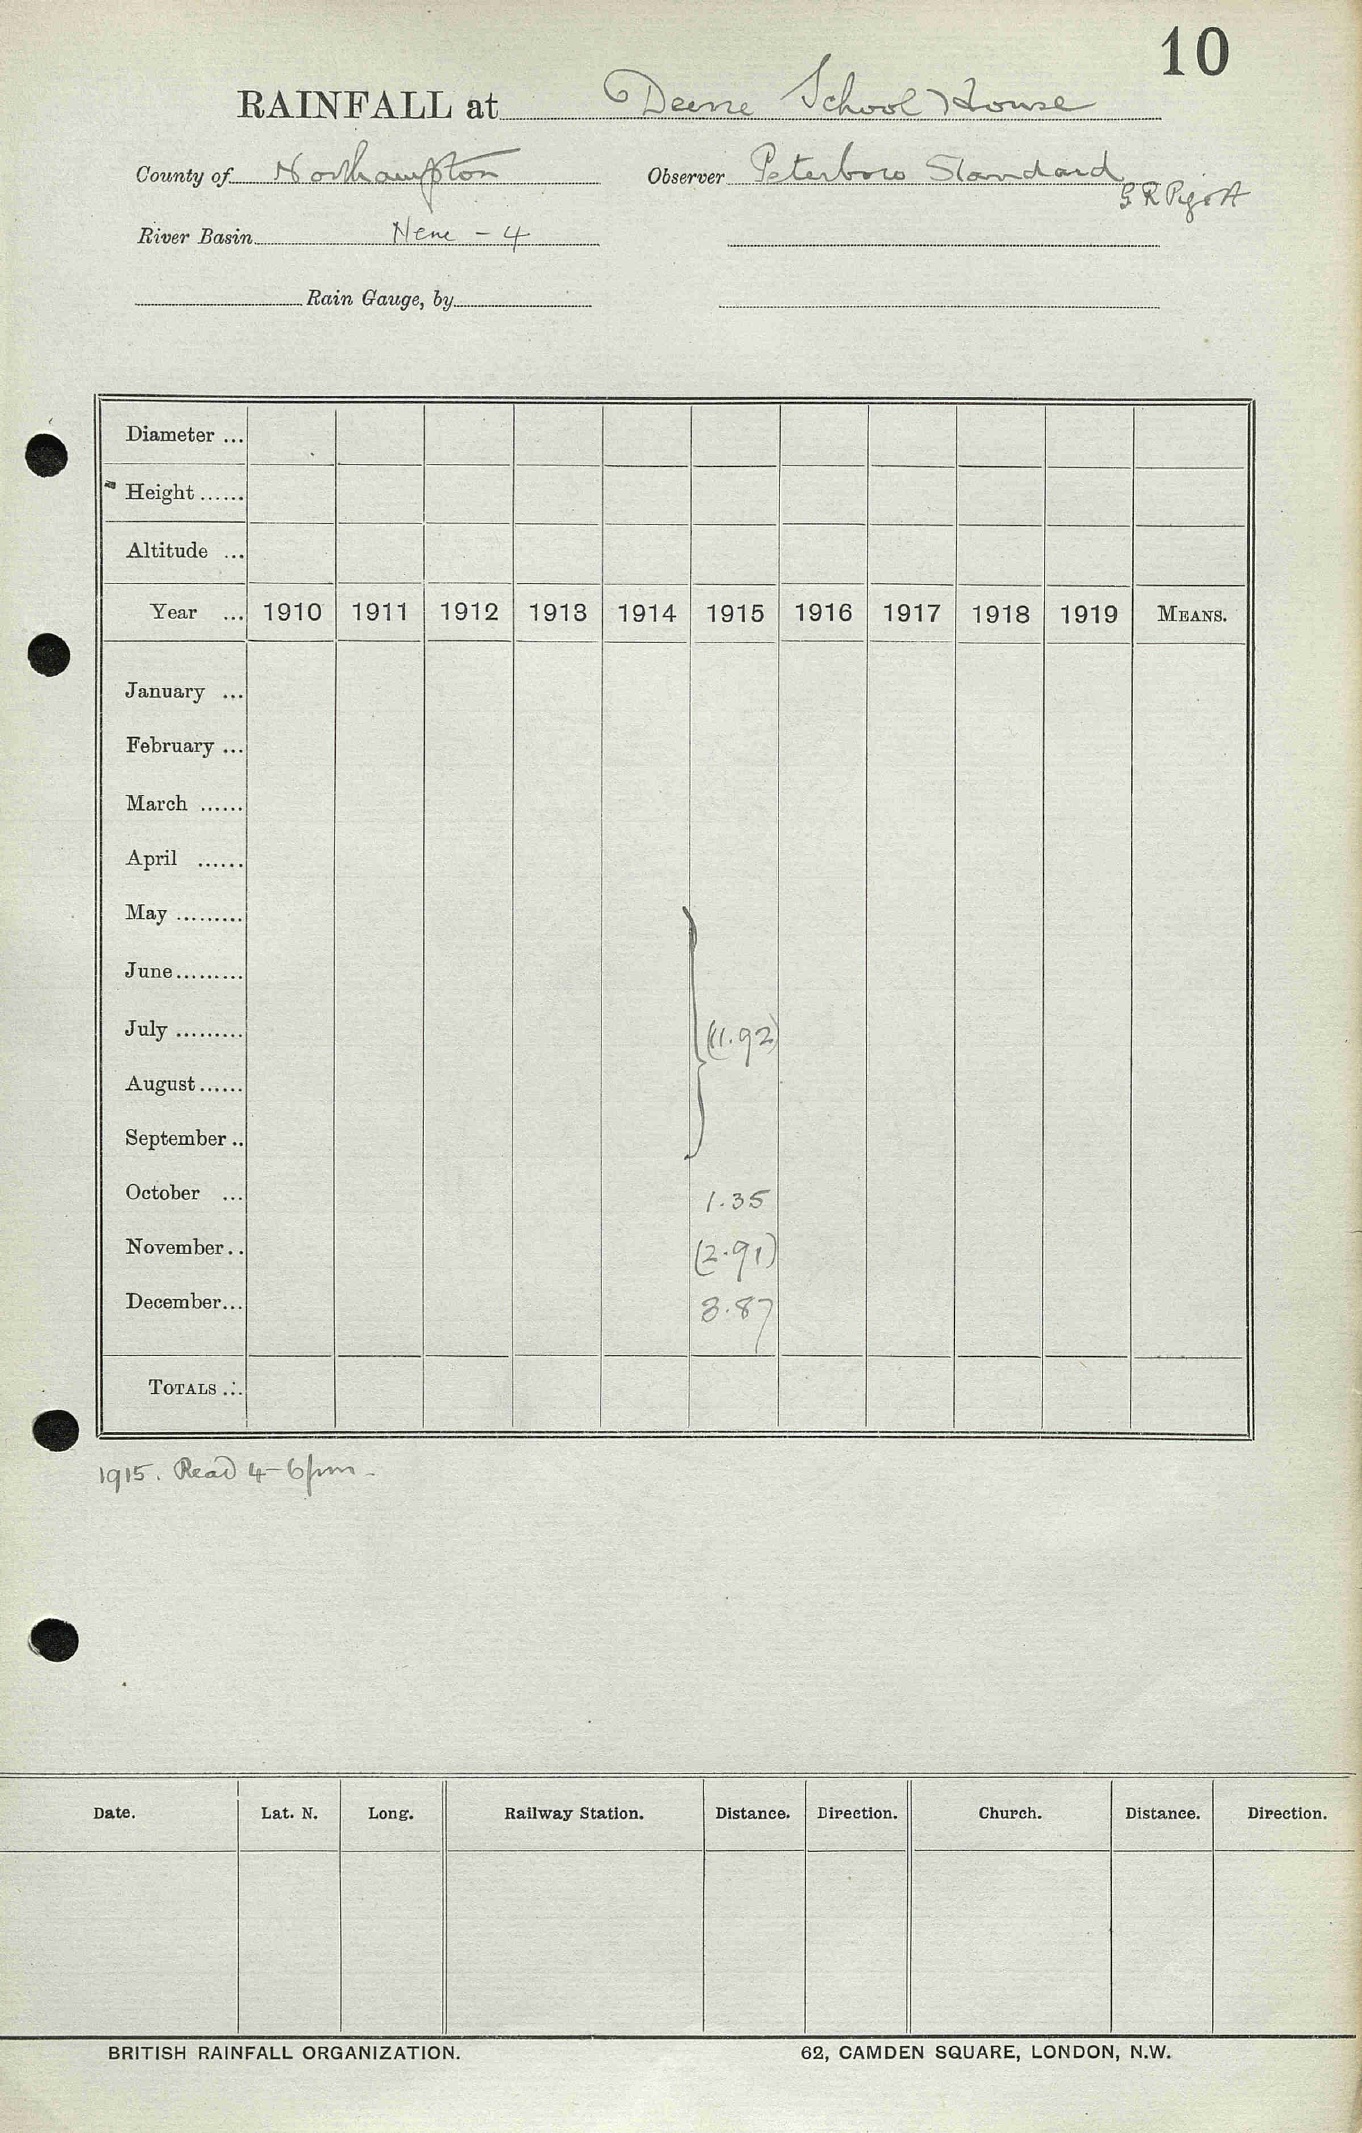 10
RAINFALL at Deene School House
County of Northampton Observer Peterboro Standard
G R Pigott
River Basin Nene - 4
Rain Gauge, by
Diameter ...
Height ......
Altitude ...
Year ... 1910 1911 1912 1913 1914 1915 1916 1917 1918 1919 MEANS.
January ...
February ...
March ......
April ......
May .........
June .........
July ......... (11.92)
August ......
September ..
October ... 1.35
November .. (2.91)
December ... 3.87
TOTALS ...
1915. Read 4-6pm -
Date. Lat. N. Long. Railway Station. Distance. Direction. Church. Distance. Direction.
BRITISH RAINFALL ORGANIZATION. 62, CAMDEN SQUARE, LONDON, N.W.